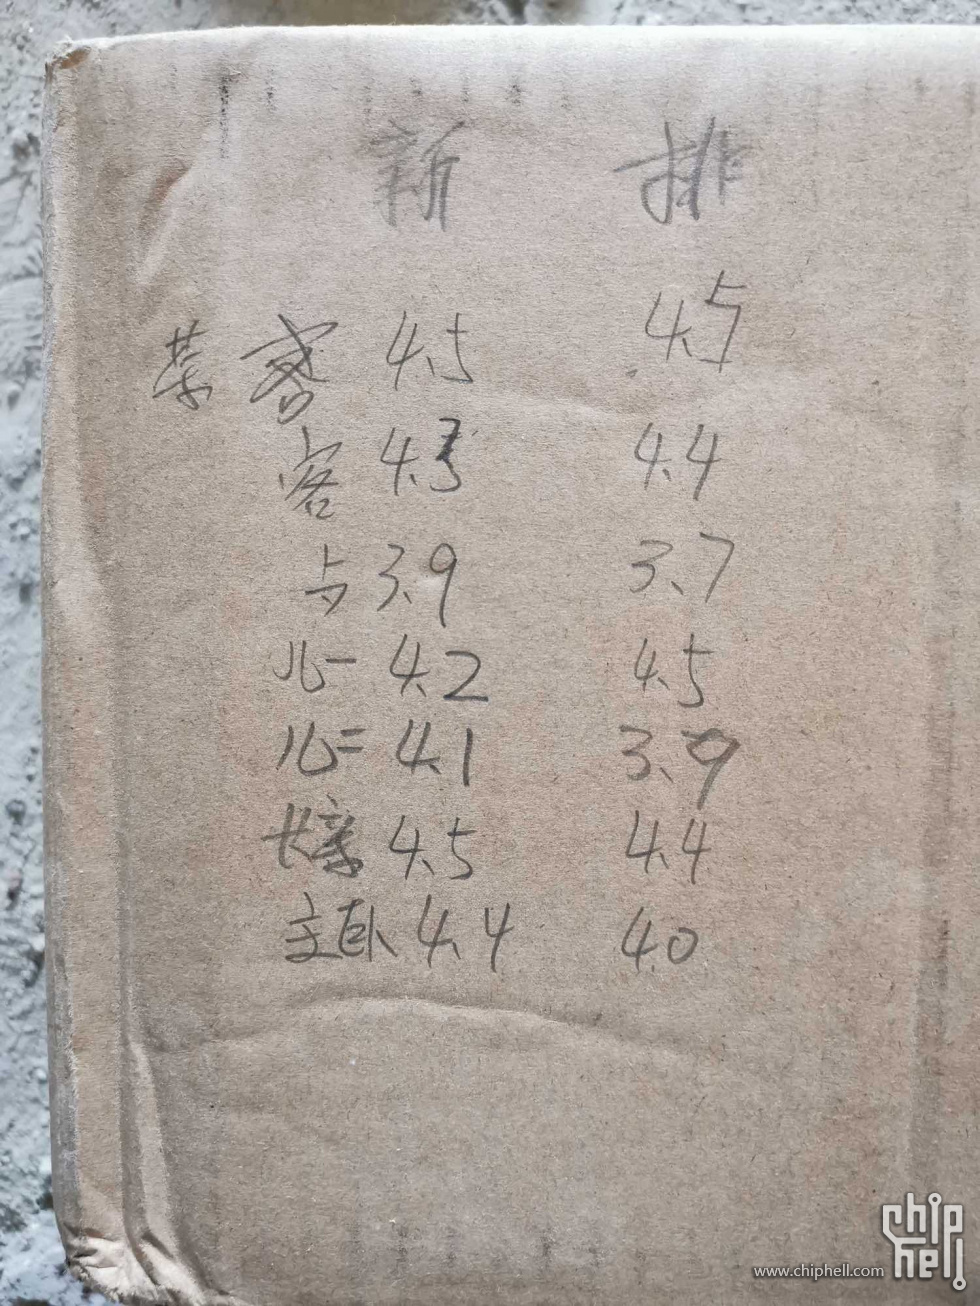 新 排
茶 4.5 4.5
客 4.3 4.4
卜 3.9 3.7
儿一 4.2 4.5
儿二 4.1 3.9
长亲 4.5 4.4
主卧 4.4 4.0
chip hell
www.chiphell.com